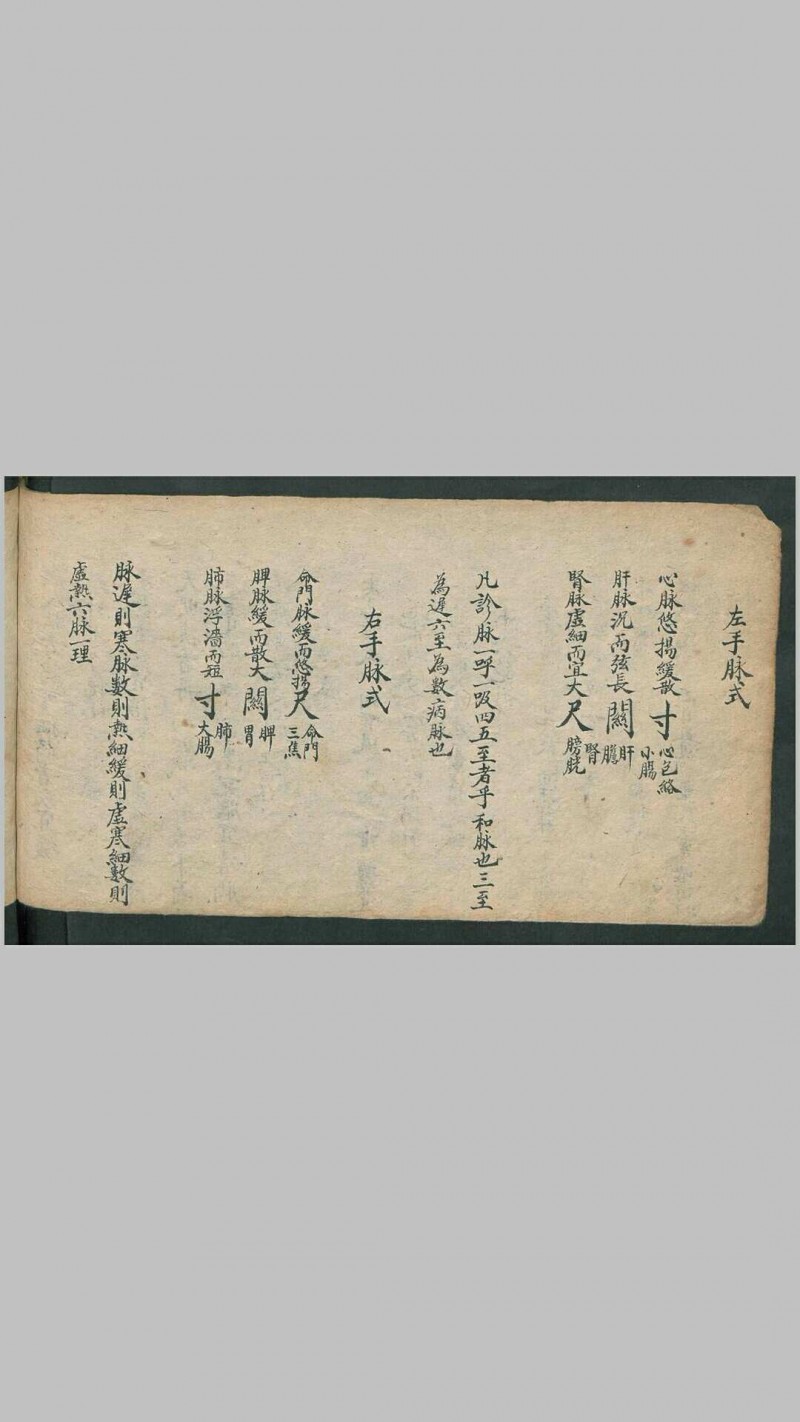 左手脉式
心脉悠揚緩散寸心包絡小腸
肝脉沉而弦長關肝膽
腎脉虛細而宜大尺腎膀胱
凡診脉一呼一吸四五至者乎和脉也三至
為遲六至為數病脉也
右手脉式
命門脉緩而悠揚尺命門三焦
脾脉緩而散大關脾胃
肺脉浮濇而短寸肺大腸
脉遲則寒脉數則熱細緩則虛寒細數則
虛熱六脉一理